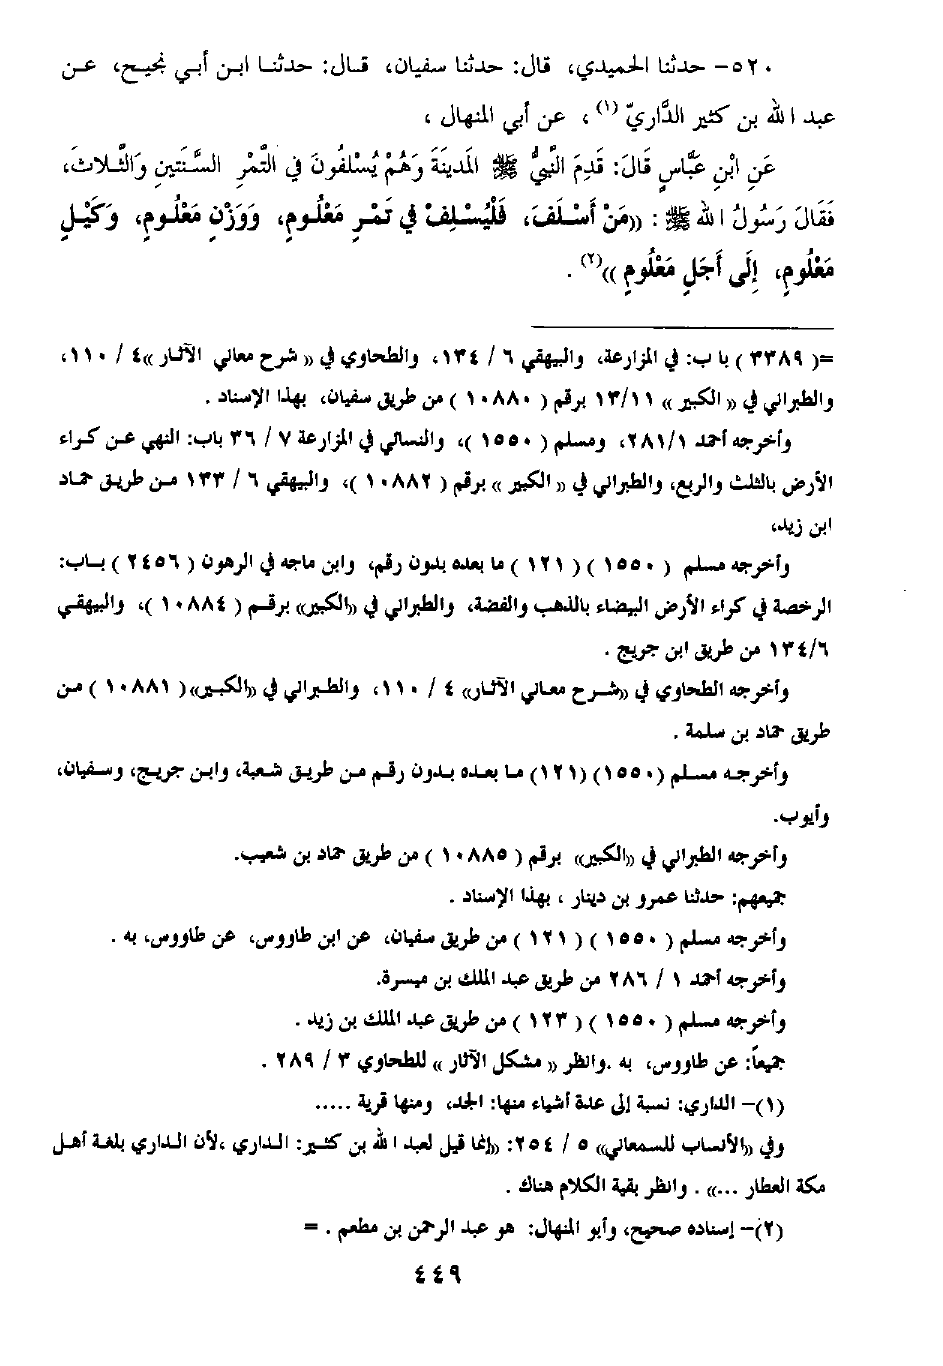 ٥٢٠- حدثنا الحميدي، قال: حدثنا سفيان، قال: حدثنا ابن أبي نجيح، عن
عبد الله بن كثير الدَّاريّ (١) ، عن أبي المنهال ،
عَنِ ابْنِ عبَّاسٍ قَالَ: قَدِمَ النَّبِيُّ ﷺ المَدِينَةَ وَهُمْ يُسْلِفُونَ في التَّمْرِ السَّنَتَينِ وَالثَّلاثَ،
فَقَالَ رَسُولُ الله ﷺ : ((مَنْ أَسْلَفَ، فَلْيُسْلِفْ في تَمْرٍ مَعْلُومٍ، وَوَزْنٍ مَعْلُومٍ، وَكَيْلٍ
مَعْلُومٍ، إِلَى أَجَلٍ مَعْلُومٍ ))(٢) .
=( ٣٣٨٩ ) باب: في المزارعة، والبيهقي ٦ / ١٣٤، والطحاوي في (( شرح معاني الآثار ))٤ / ١١٠،
والطبراني في (( الكبير )) ١٣/١١ برقم ( ١٠٨٨٠ ) من طريق سفيان، بهذا الإسناد .
وأخرجه أحمد ٢٨١/١، ومسلم ( ١٥٥٠ )، والنسائي في المزارعة ٧ / ٣٦ باب: النهي عن كراء
الأرض بالثلث والربع، والطبراني في (( الكبير )) برقم ( ١٠٨٨٢ )، والبيهقي ٦ / ١٣٣ من طريق حماد
ابن زيد،
وأخرجه مسلم ( ١٥٥٠ ) ( ١٢١ ) ما بعده بدون رقم، وابن ماجه في الرهون ( ٢٤٥٦ ) باب:
الرخصة في كراء الأرض البيضاء بالذهب والفضة، والطبراني في ((الكبير)) برقم ( ١٠٨٨٤ )، والبيهقي
١٣٤/٦ من طريق ابن جريج .
وأخرجه الطحاوي في ((شرح معاني الآثار)) ٤ / ١١٠، والطبراني في ((الكبير))( ١٠٨٨١ ) من
طريق حماد بن سلمة .
وأخرجه مسلم (١٥٥٠) (١٢١) ما بعده بدون رقم من طريق شعبة، وابن جريج، وسفيان،
وأيوب.
وأخرجه الطبراني في ((الكبير)) برقم ( ١٠٨٨٥ ) من طريق حماد بن شعيب.
جميعهم: حدثنا عمرو بن دينار ، بهذا الإسناد .
وأخرجه مسلم ( ١٥٥٠ ) ( ١٢١ ) من طريق سفيان، عن ابن طاووس، عن طاووس، به .
وأخرجه أحمد ١ / ٢٨٦ من طريق عبد الملك بن ميسرة.
وأخرجه مسلم ( ١٥٥٠ ) ( ١٢٣ ) من طريق عبد الملك بن زيد .
جميعاً: عن طاووس، به .وانظر (( مشكل الآثار )) للطحاوي ٣ / ٢٨٩ .
(١)- الداري: نسبة إلى عدة أشياء منها: الجد، ومنها قرية .....
وفي ((الأنساب للسمعاني)) ٥ / ٢٥٤: ((إنما قيل لعبد الله بن كثير: الداري ،لأن الداري بلغة أهل
مكة العطار ...)) . وانظر بقية الكلام هناك .
(٢)- إسناده صحيح، وأبو المنهال: هو عبد الرحمن بن مطعم . =
٤٤٩